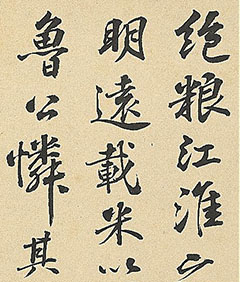 絶粮江淮
明遠載米以
魯公憐其